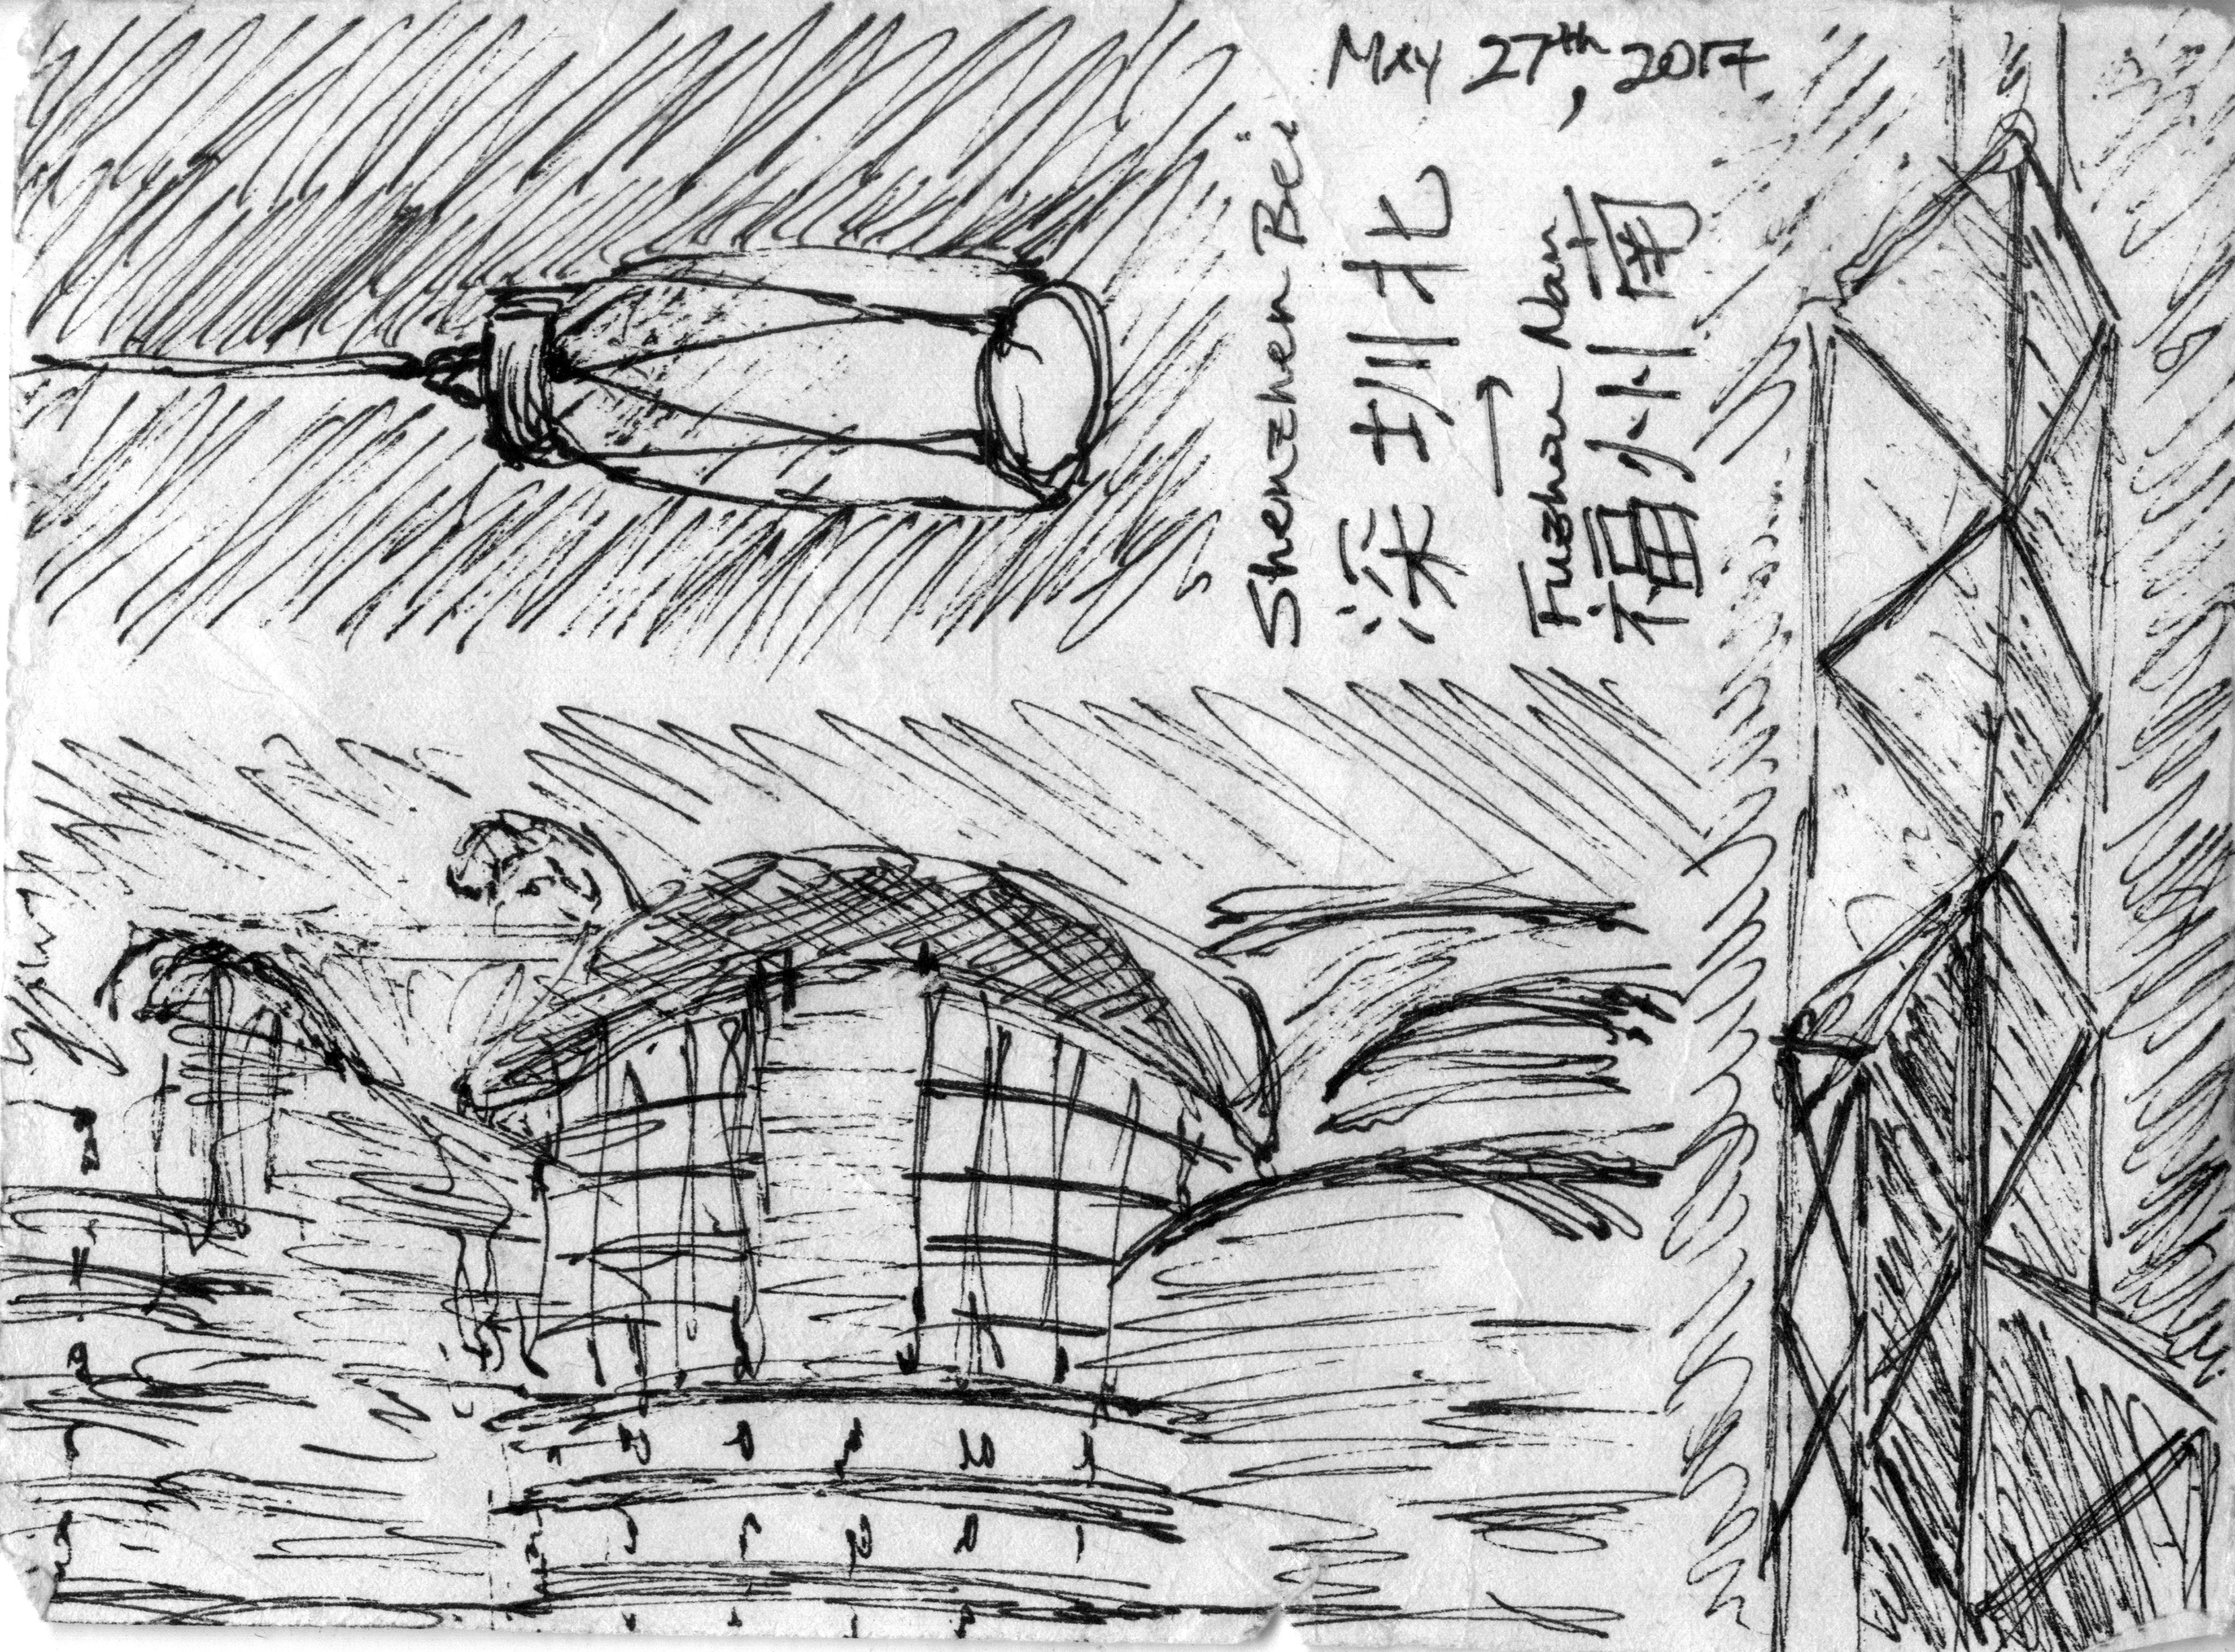 May 27th, 2017
Shenzhen Bei
深圳北
→
Fuzhou Nan
福州南